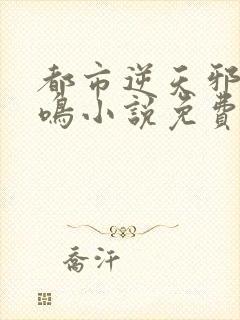 都市逆天邪
鳴小說免費
喬汗